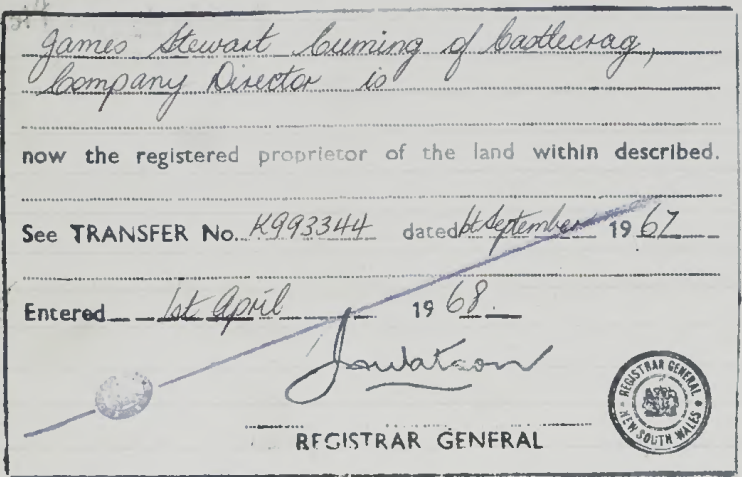 James Stewart Cuming of Castlecrag,
Company Director is
now the registered proprietor of the land within described.
See TRANSFER No. K993344 dated September 1967
Entered 1st April 1968.
REGISTRAR GENERAL
REGISTRAR GENERAL NEW SOUTH WALES